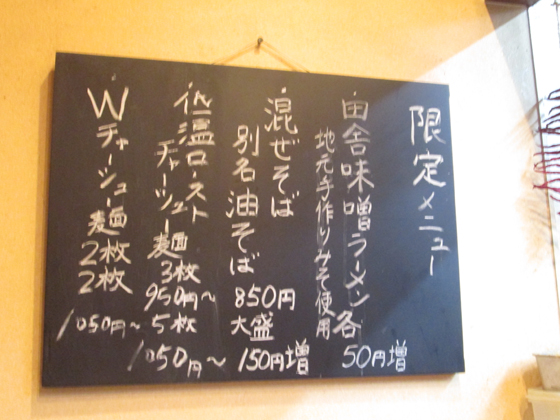 限定メニュー
田舎味噌ラーメン各
地元手作りみそ使用
50円増
混ぜそば
別名油そば
850円
大盛
150円増
低温ロースト
チャーシュー麺
3枚
950円～
5枚
1050円～
Wチャーシュー麺
2枚
2枚
1050円～